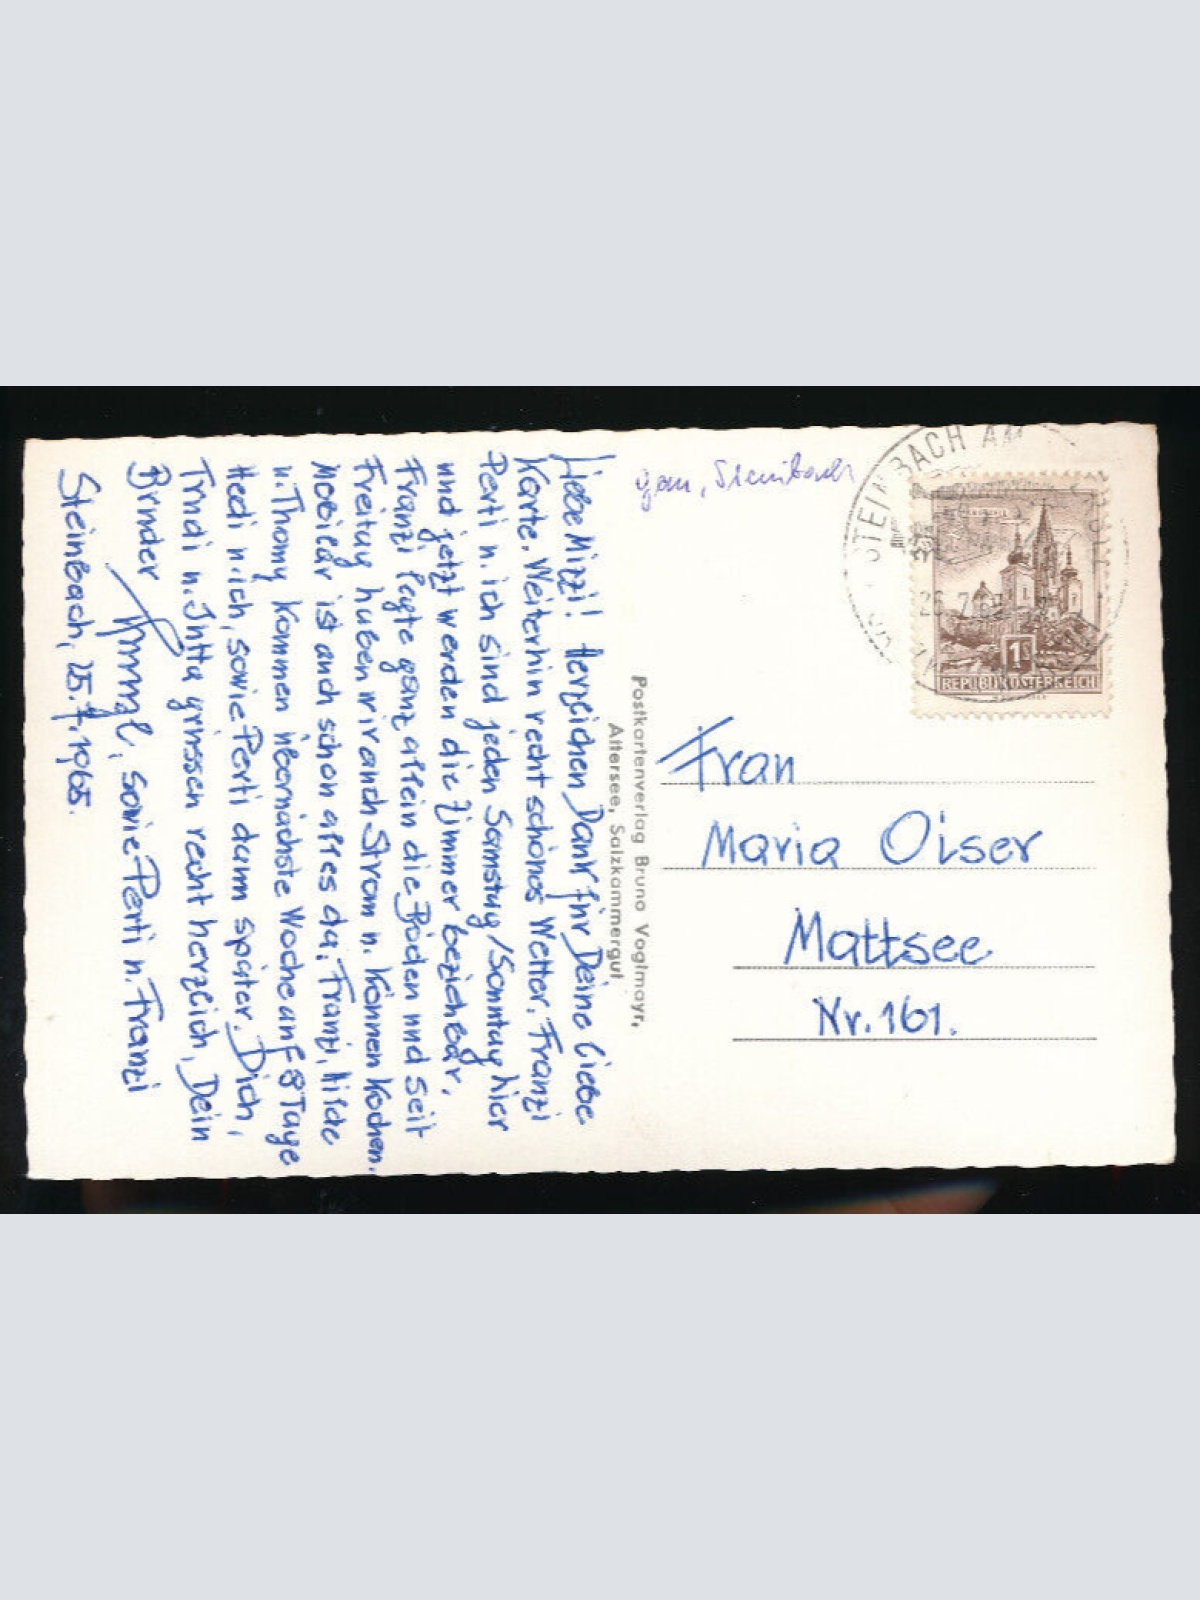 Liebe Mizzi! Herzlichen Dank für Deine liebe
Karte. Weiterhin recht schönes Wetter. Franzi
Perti u. ich sind jeden Samstag/Sonntag hier
und jetzt werden die Zimmer beziehbar,
Franzi legte ganz allein die Böden und seit
Freitag haben wir auch Strom u. können kochen.
Mobilar ist auch schon alles da. Franzi, Hilde
u. Thomy kommen übernächste Woche auf 8 Tage
Hedi u. ich, sowie Perti dann später. Dich,
Trudi u. Jutta grüssen recht herzlich, Dein
Bruder
sowie Perti u. Franzi
Steinbach, 25.7.1965.
Postkartenverlag Bruno Voglmayr,
Attersee, Salzkammergut
Steinbach
STEINBACH AM
26.7.65
1s
REPUBLIK ÖSTERREICH
Frau
Maria Oiser
Mattsee
Nr. 161.